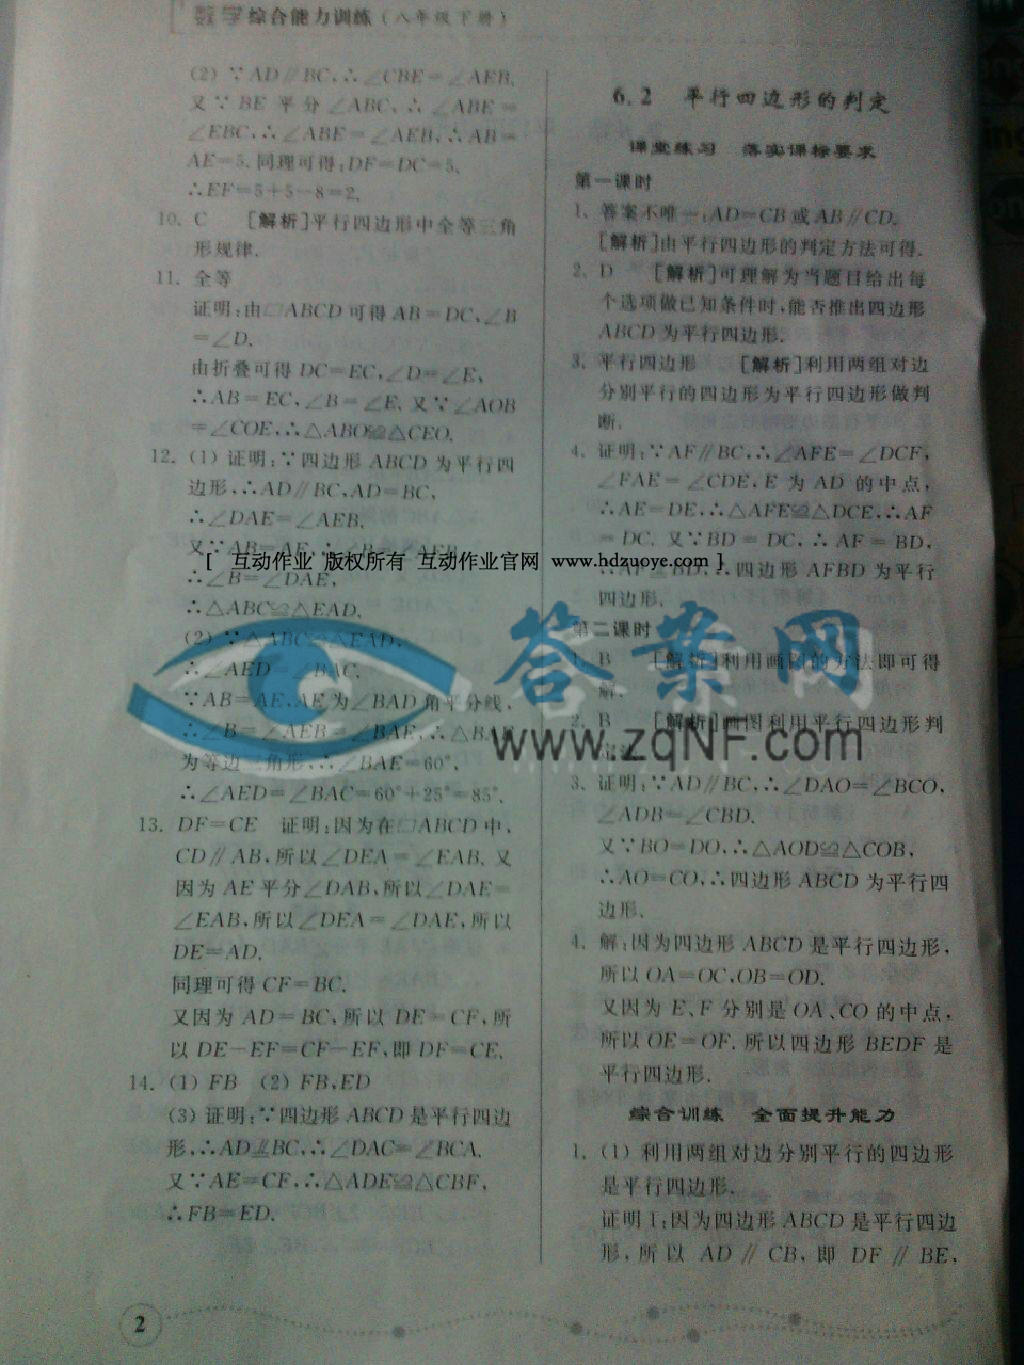 数学综合能力训练(八年级下册)
(2) ∵AD∥BC,∴∠CBE=∠AEB.
又∵BE平分∠ABC,∴∠ABE=
∠EBC,∴∠ABE=∠AEB,∴AB=
AE=5.同理可得:DF=DC=5,
∴EF=5+5-8=2.
10. C [解析]平行四边形中全等三角
形规律.
11. 全等
证明:由□ABCD可得AB=DC,∠B
=∠D.
由折叠可得DC=EC,∠D=∠E,
∴AB=EC,∠B=∠E.又∵∠AOB
=∠COE,∴△ABO≌△CEO.
12. (1) 证明:∵四边形ABCD为平行四
边形,∴AD∥BC,AD=BC,
∴∠DAE=∠AEB.
又∵AB=AE,∴∠B=∠AEB,
∴∠B=∠DAE,
∴△ABC≌△EAD.
(2) ∵△ABC≌△EAD,
∴∠AED=∠BAC.
∵AB=AE,AE为∠BAD角平分线,
∴∠B=∠AEB=∠BAE,∴△BAE
为等边三角形,∴∠BAE=60°,
∴∠AED=∠BAC=60°+25°=85°.
13. DF=CE 证明:因为在□ABCD中,
CD∥AB,所以∠DEA=∠EAB.又
因为AE平分∠DAB,所以∠DAE=
∠EAB,所以∠DEA=∠DAE,所以
DE=AD.
同理可得CF=BC.
又因为AD=BC,所以DE=CF,所
以DE-EF=CF-EF,即DF=CE.
14. (1) FB (2) FB,ED
(3) 证明:∵四边形ABCD是平行四边
形,∴AD∥BC,∴∠DAC=∠BCA.
又∵AE=CF,∴△ADE≌△CBF,
∴FB=ED.
2
6.2 平行四边形的判定
课堂练习 落实课标要求
第一课时
1. 答案不唯一:AD=CB或AB∥CD.
[解析]由平行四边形的判定方法可得.
2. D [解析]可理解为当题目给出每
个选项做已知条件时,能否推出四边形
ABCD为平行四边形.
3. 平行四边形 [解析]利用两组对边
分别平行的四边形为平行四边形做判
断.
4. 证明:∵AF∥BC,∴∠AFE=∠DCF,
∠FAE=∠CDE,E为AD的中点,
∴AE=DE,∴△AFE≌△DCE,∴AF
=DC.又∵BD=DC,∴AF=BD,
∴AF BD,∴四边形AFBD为平行
四边形.
第二课时
1. B [解析]利用画图的方法即可得
解.
2. B [解析]画图利用平行四边形判
3. 证明:∵AD∥BC,∴∠DAO=∠BCO,
∠ADB=∠CBD.
又∵BO=DO,∴△AOD≌△COB,
∴AO=CO,∴四边形ABCD为平行四
边形.
4. 解:因为四边形ABCD是平行四边形,
所以OA=OC,OB=OD.
又因为E、F分别是OA、CO的中点,
所以OE=OF.所以四边形BEDF是
平行四边形.
综合训练 全面提升能力
1. (1) 利用两组对边分别平行的四边形
是平行四边形.
证明1:因为四边形ABCD是平行四边
形,所以AD∥CB,即DF∥BE,
[ 互动作业 版权所有 互动作业官网 www.hdzuoye.com ]
答案网
www.zqNF.com